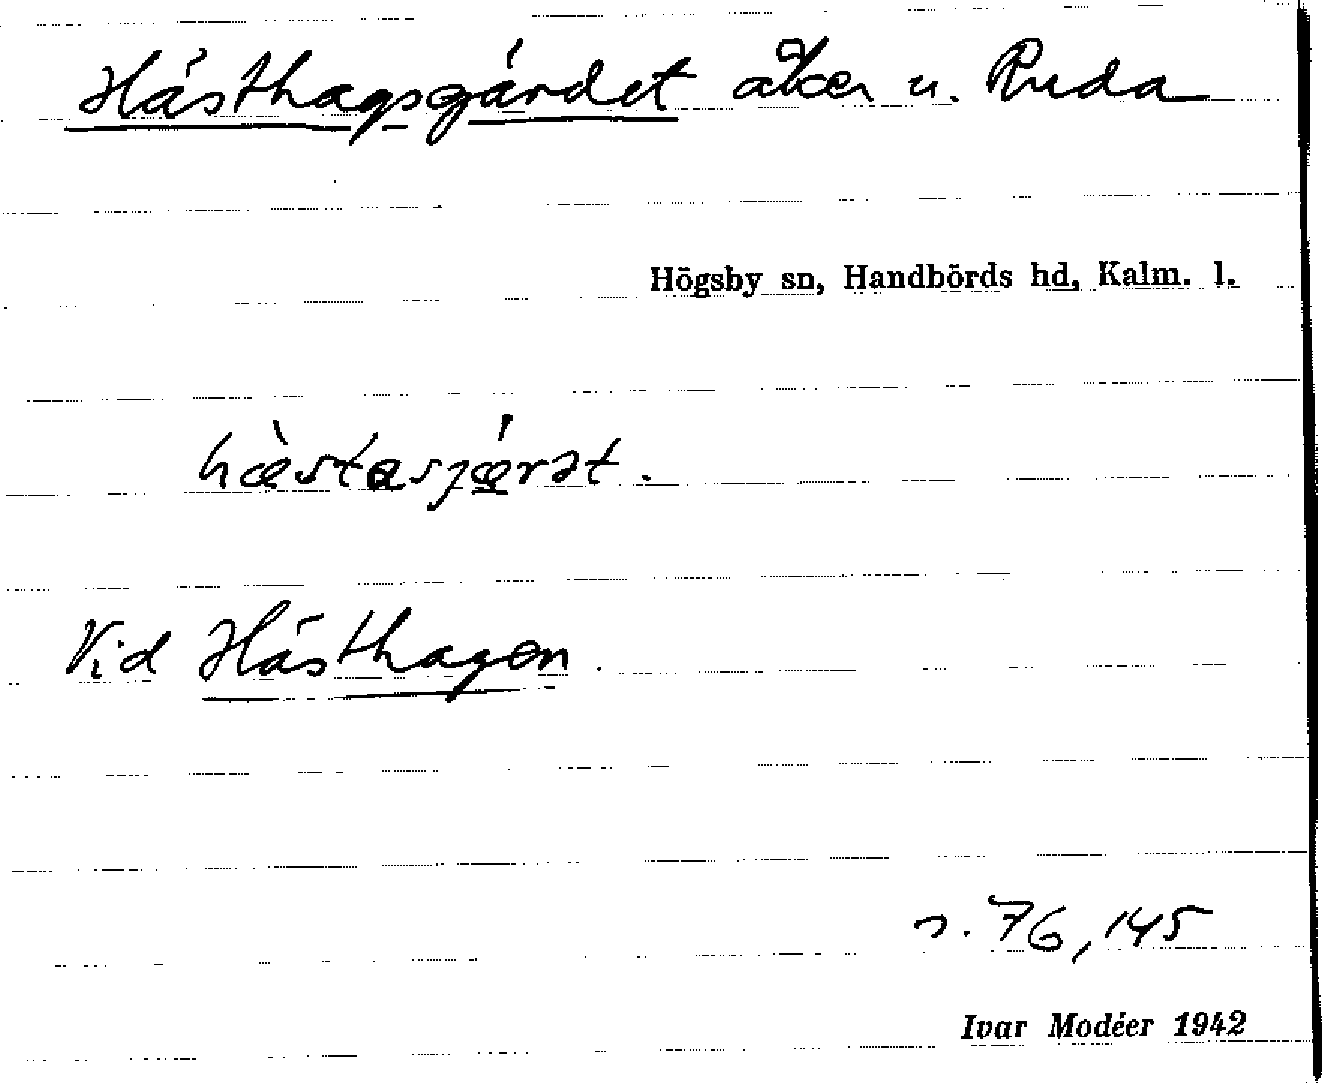 Hästhagsgärdet åker u. Ruda
Högsby sn, Handbörds hd, Kalm. l.
hæ̀stasjǽrət.
Vid Hästhagen.
s. 76, 145
Ivar Modéer 1942